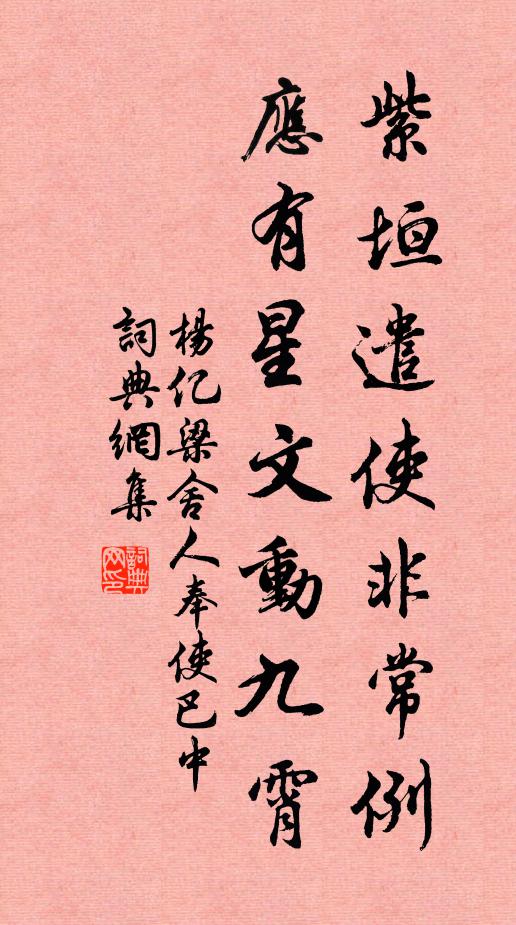 紫垣遣使非常例
應有星文動九霄
楊亿梁舍人奉使巴中
詞典網集
詞典网印